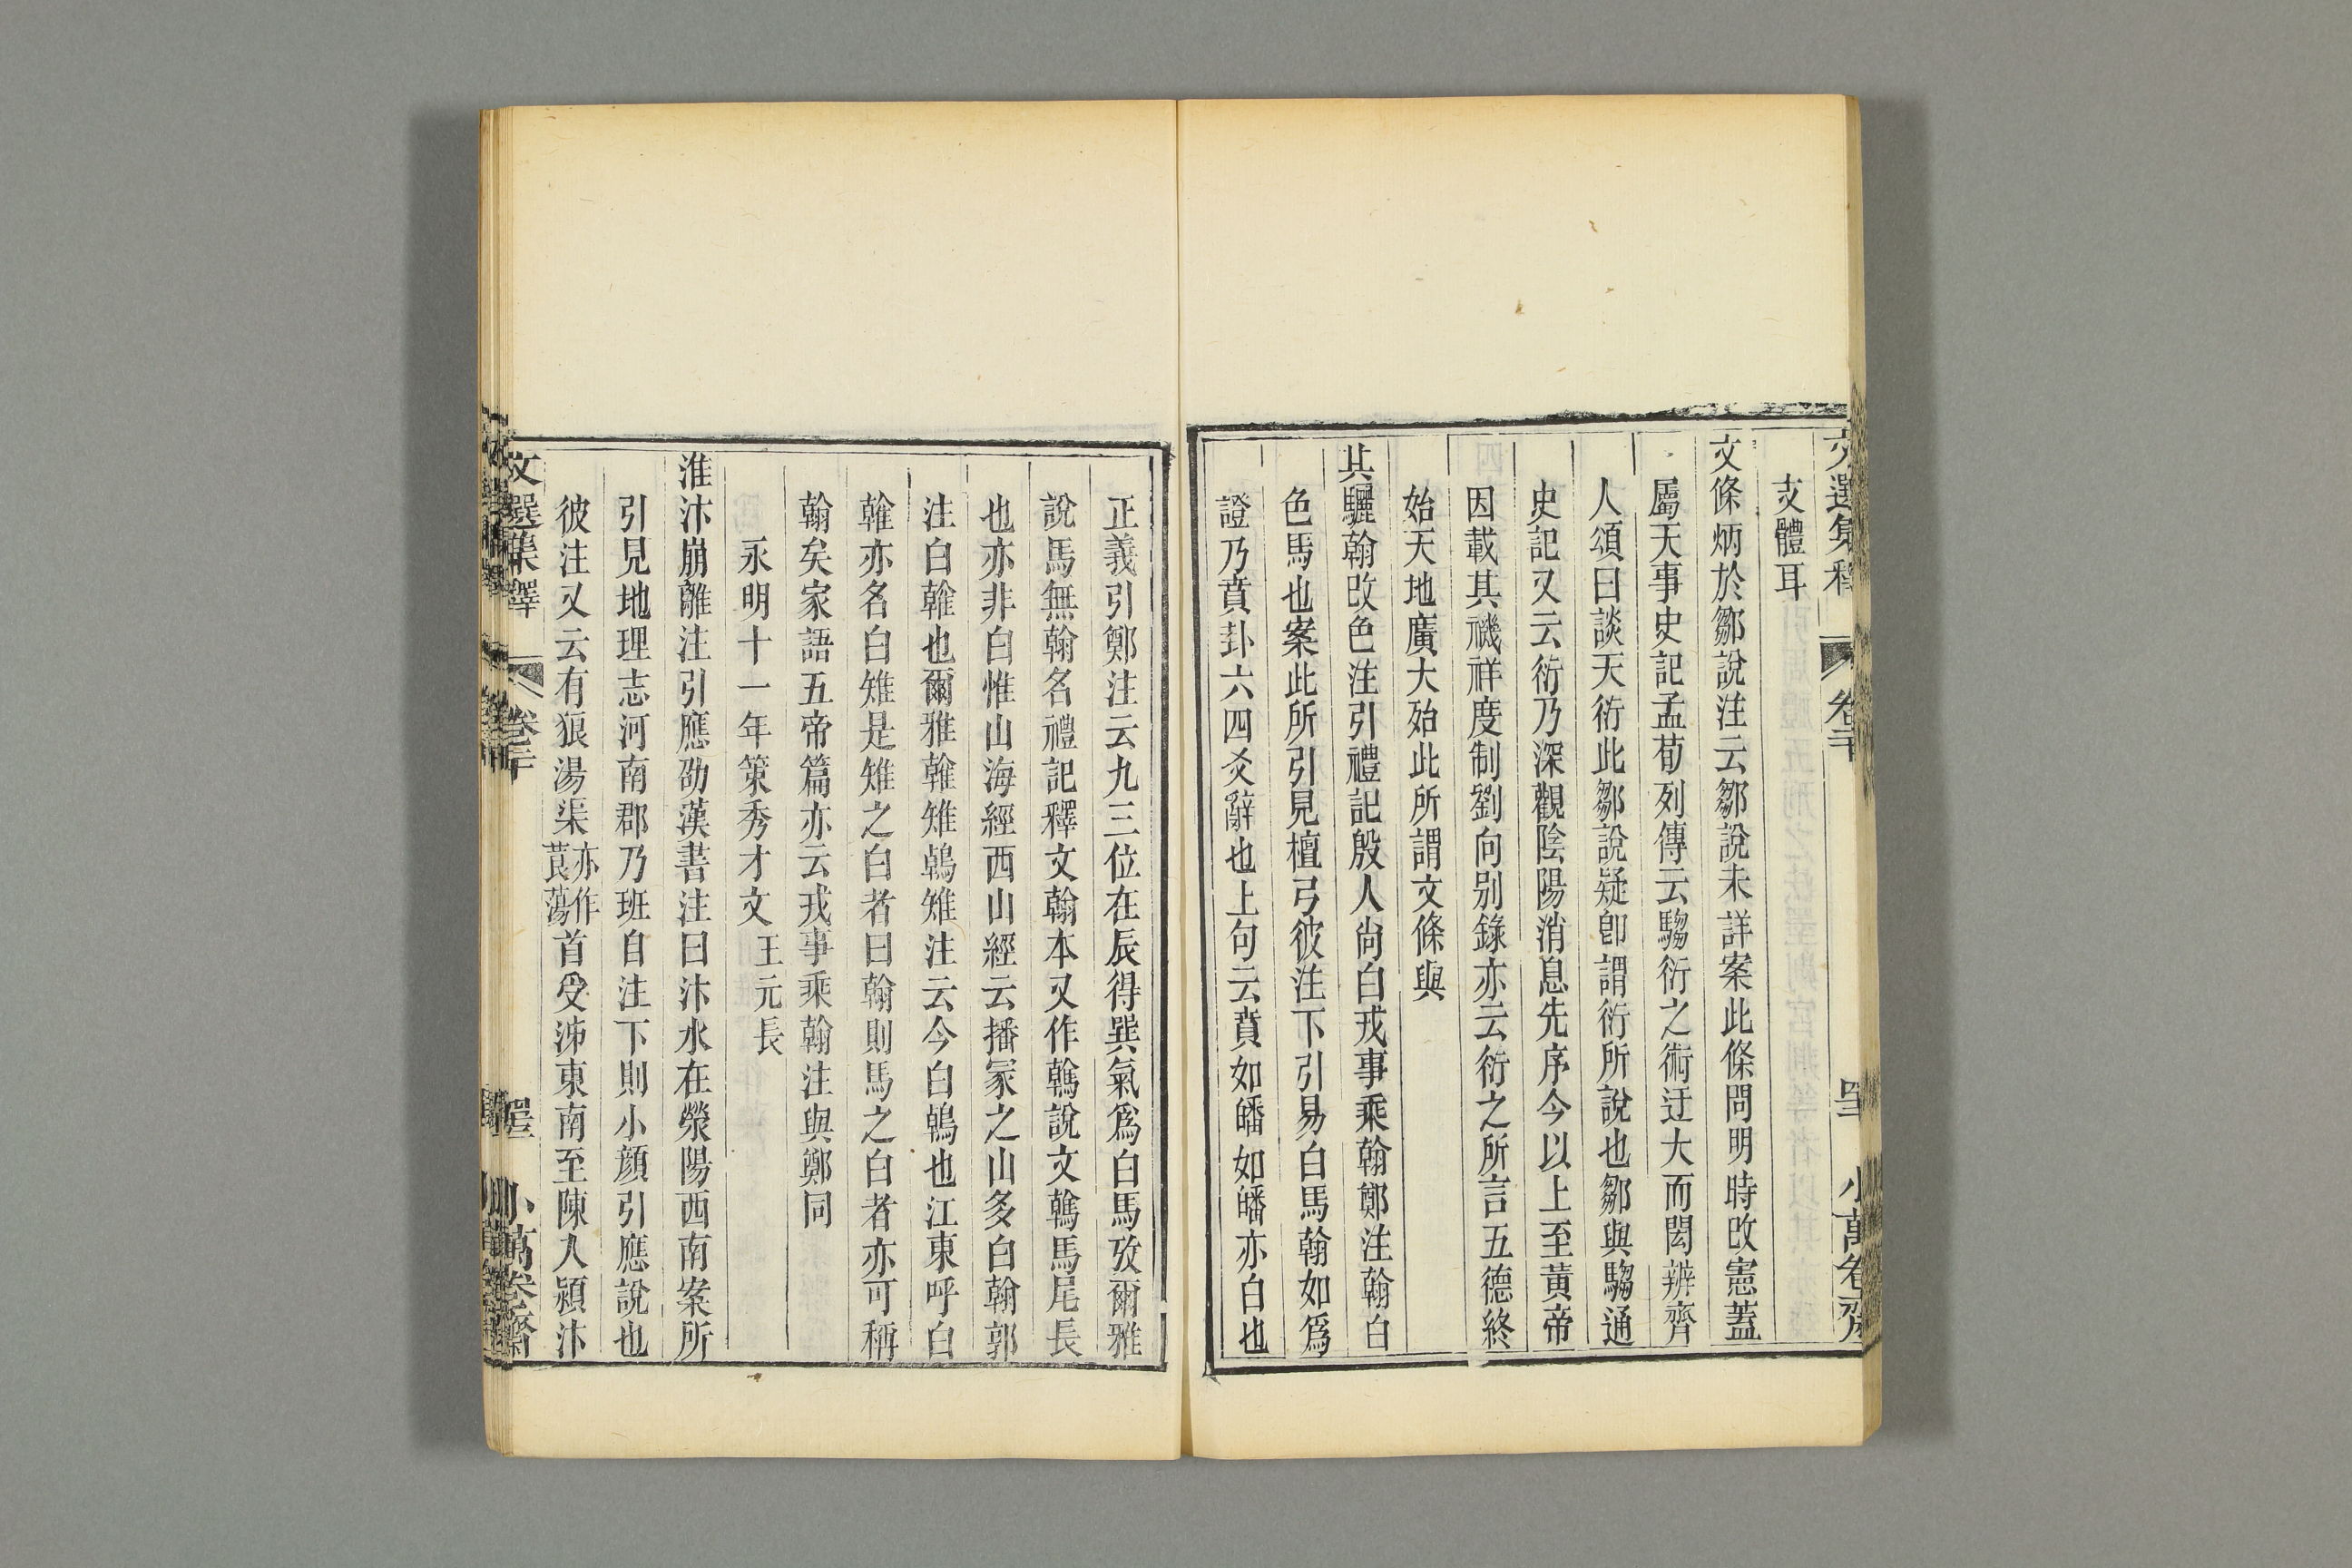 文選集釋 卷二十 小萬卷齋
支體耳
文條炳於鄒說注云鄒說未詳案此條問明時改憲蓋
屬天事史記孟荀列傳云騶衍之術迂大而閎辨齊
人頌曰談天衍此鄒說疑卽謂衍所說也鄒與騶通
史記又云衍乃深觀陰陽消息先序今以上至黃帝
因載其禨祥度制劉向别錄亦云衍之所言五德終
始天地廣大殆此所謂文條與
其驪翰改色注引禮記殷人尙白戎事乘翰鄭注翰白
色馬也案此所引見檀弓彼注下引易白馬翰如爲
證乃賁卦六四爻辭也上句云賁如皤如皤亦白也
正義引鄭注云九三位在辰得巽氣爲白馬攷爾雅
說馬無翰名禮記釋文翰本又作鶾說文鶾馬尾長
也亦非白惟山海經西山經云播冢之山多白翰郭
注白雗也爾雅雗雉鵫雉注云今白鵫也江東呼白
雗亦名白雉是雉之白者曰翰則馬之白者亦可稱
翰矣家語五帝篇亦云戎事乘翰注與鄭同
永明十一年策秀才文 王元長
淮汴崩離注引應劭漢書注曰汴水在滎陽西南案所
引見地理志河南郡乃班自注下則小顔引應說也
彼注又云有狼湯渠亦作莨蕩首受泲東南至陳入潁汴
文選集釋 卷二十 小萬卷齋